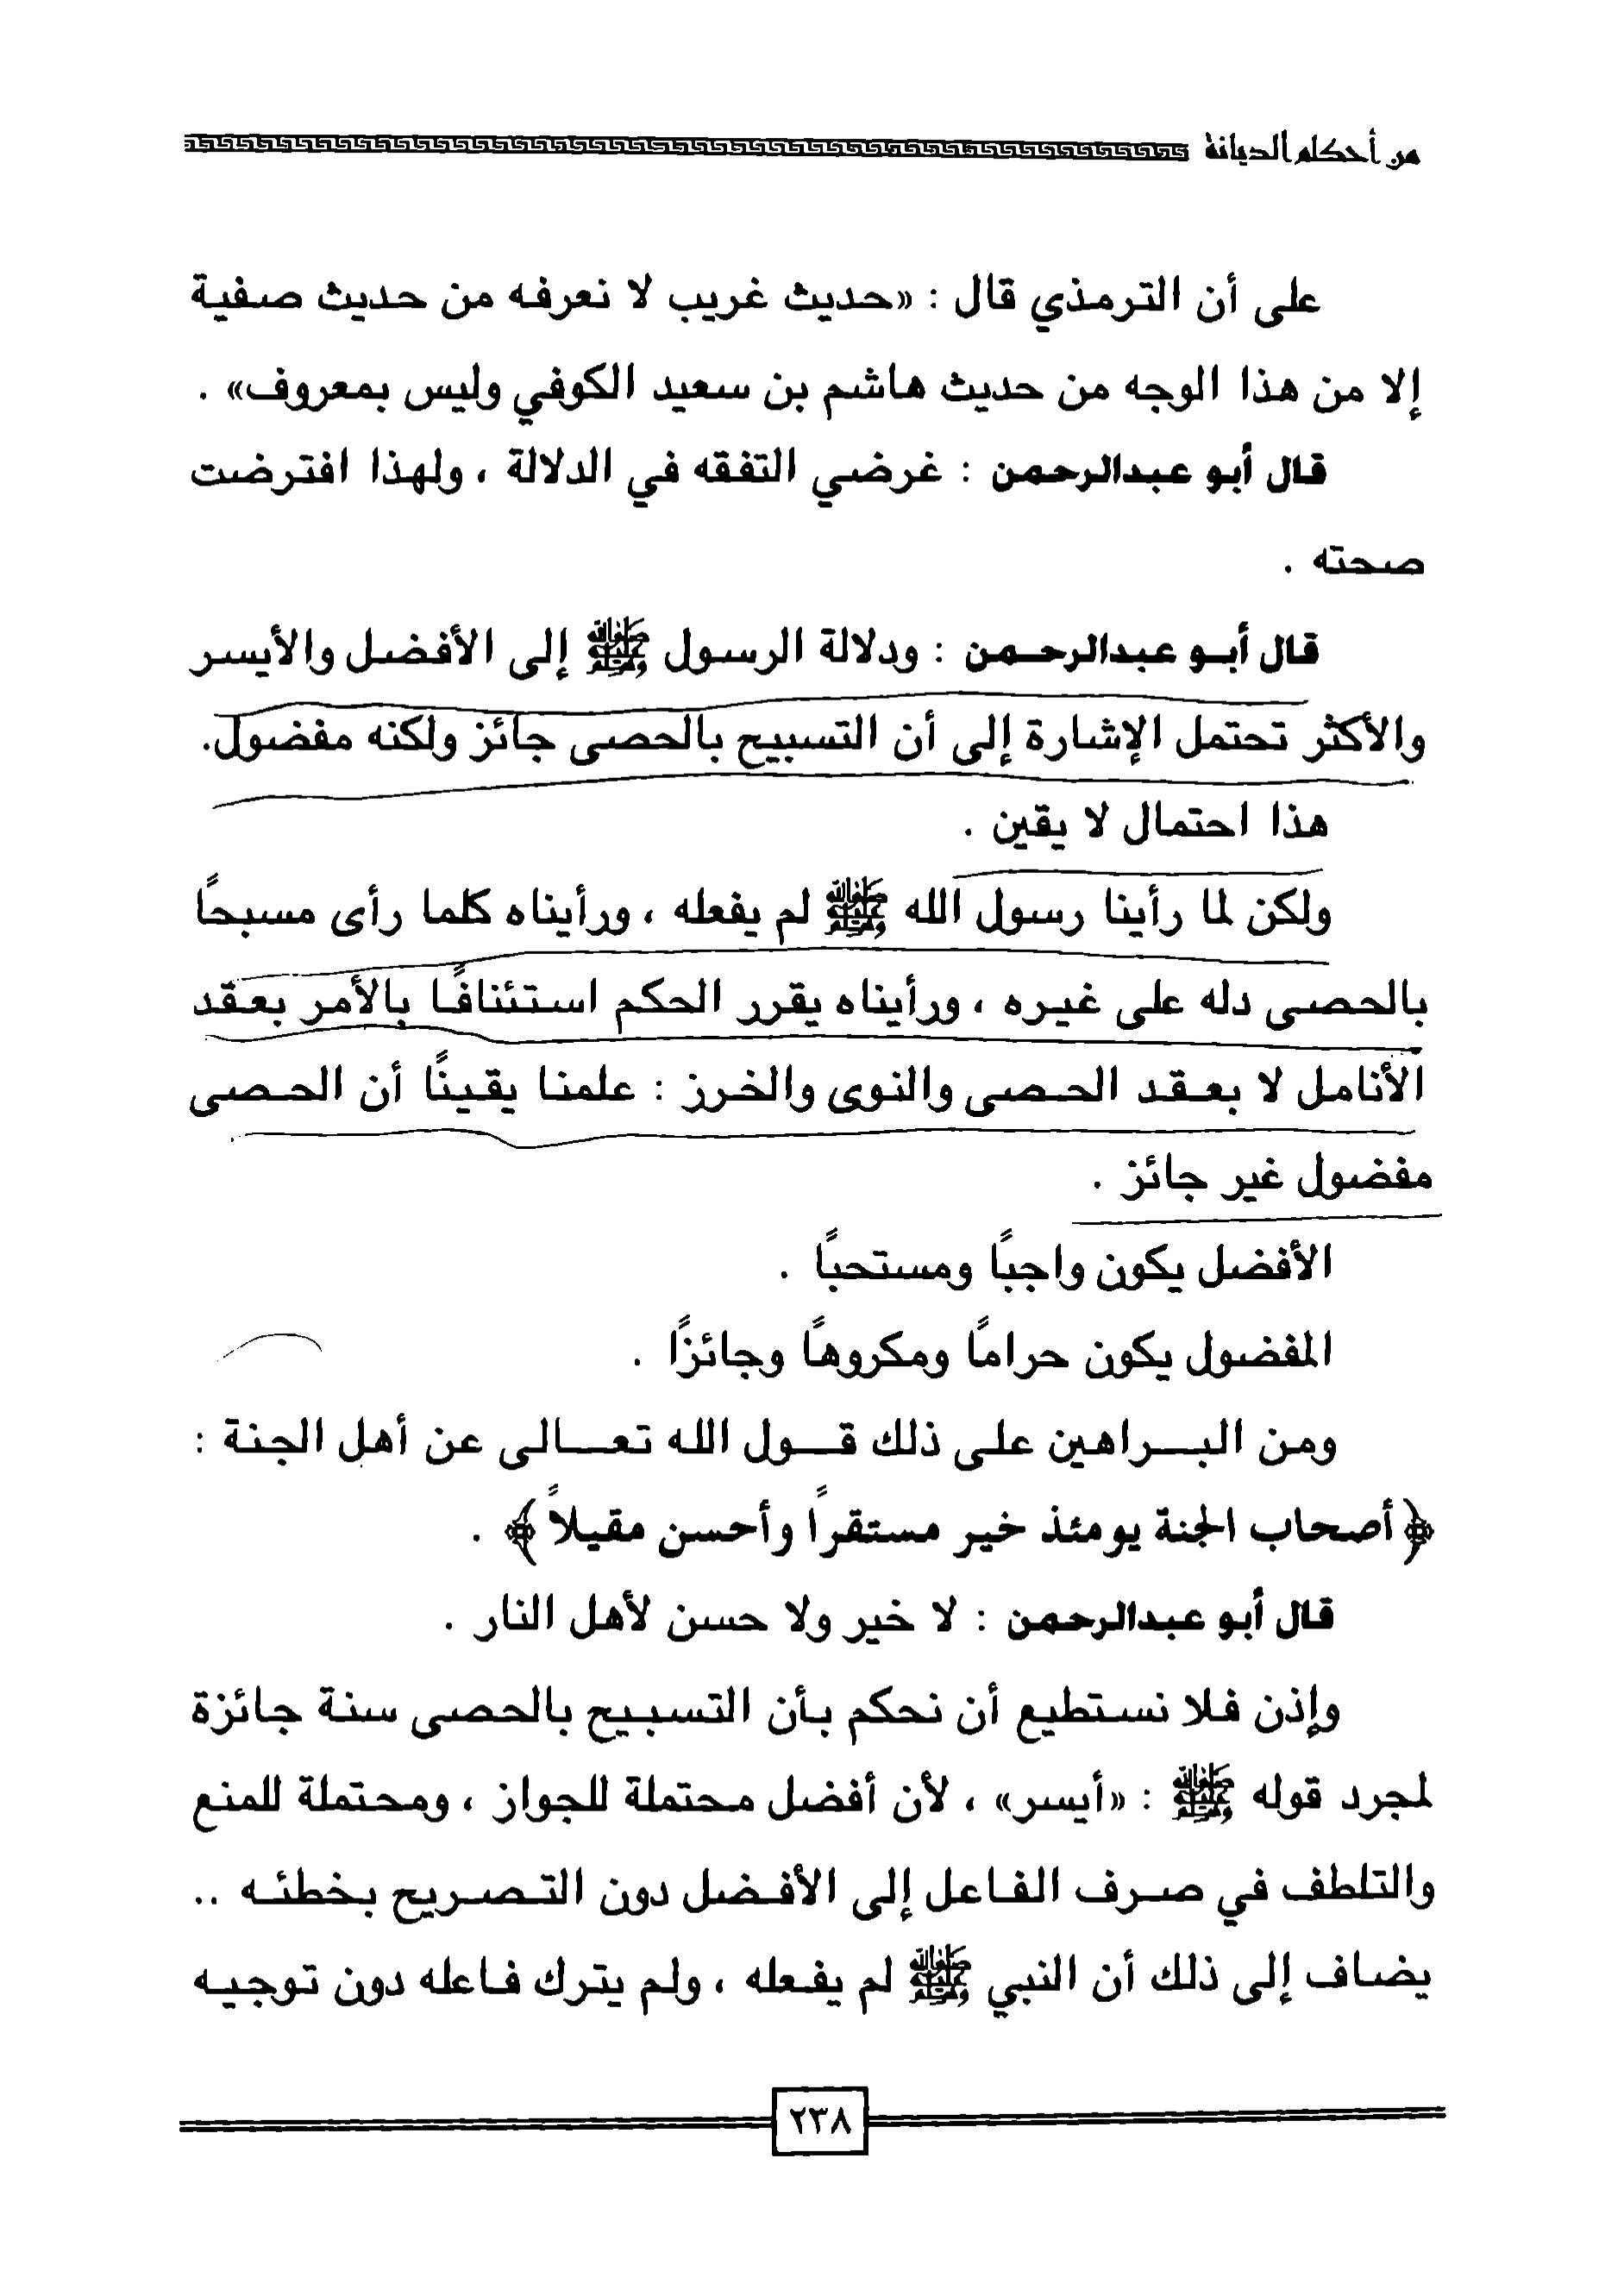 من أحكام الديانة
على أن الترمذي قال : «حديث غريب لا نعرفه من حديث صفية
إلا من هذا الوجه من حديث هاشم بن سعيد الكوفي وليس بمعروف» .
قال أبو عبدالرحمن : غرضي التفقه في الدلالة ، ولهذا افترضت
صحته .
قال أبو عبدالرحمن : ودلالة الرسول ﷺ إلى الأفضل والأيسر
والأكثر تحتمل الإشارة إلى أن التسبيح بالحصى جائز ولكنه مفضول.
هذا احتمال لا يقين .
ولكن لما رأينا رسول الله ﷺ لم يفعله ، ورأيناه كلما رأى مسبحاً
بالحصى دله على غيره ، ورأيناه يقرر الحكم استئنافًا بالأمر بعقد
الأنامل لا بعقد الحصى والنوى والخرز : علمنا يقينًا أن الحصى
مفضول غير جائز .
الأفضل يكون واجبًا ومستحبًا .
المفضول يكون حرامًا ومكروهًا وجائزًا .
ومن البراهين على ذلك قول الله تعالى عن أهل الجنة :
﴿أصحاب الجنة يومئذ خير مستقرًا وأحسن مقيلاً﴾ .
قال أبو عبدالرحمن : لا خير ولا حسن لأهل النار .
وإذن فلا نستطيع أن نحكم بأن التسبيح بالحصى سنة جائزة
لمجرد قوله ﷺ : «أيسر» ، لأن أفضل محتملة للجواز ، ومحتملة للمنع
والتلطف في صرف الفاعل إلى الأفضل دون التصريح بخطئه ..
يضاف إلى ذلك أن النبي ﷺ لم يفعله ، ولم يترك فاعله دون توجيه
٢٣٨